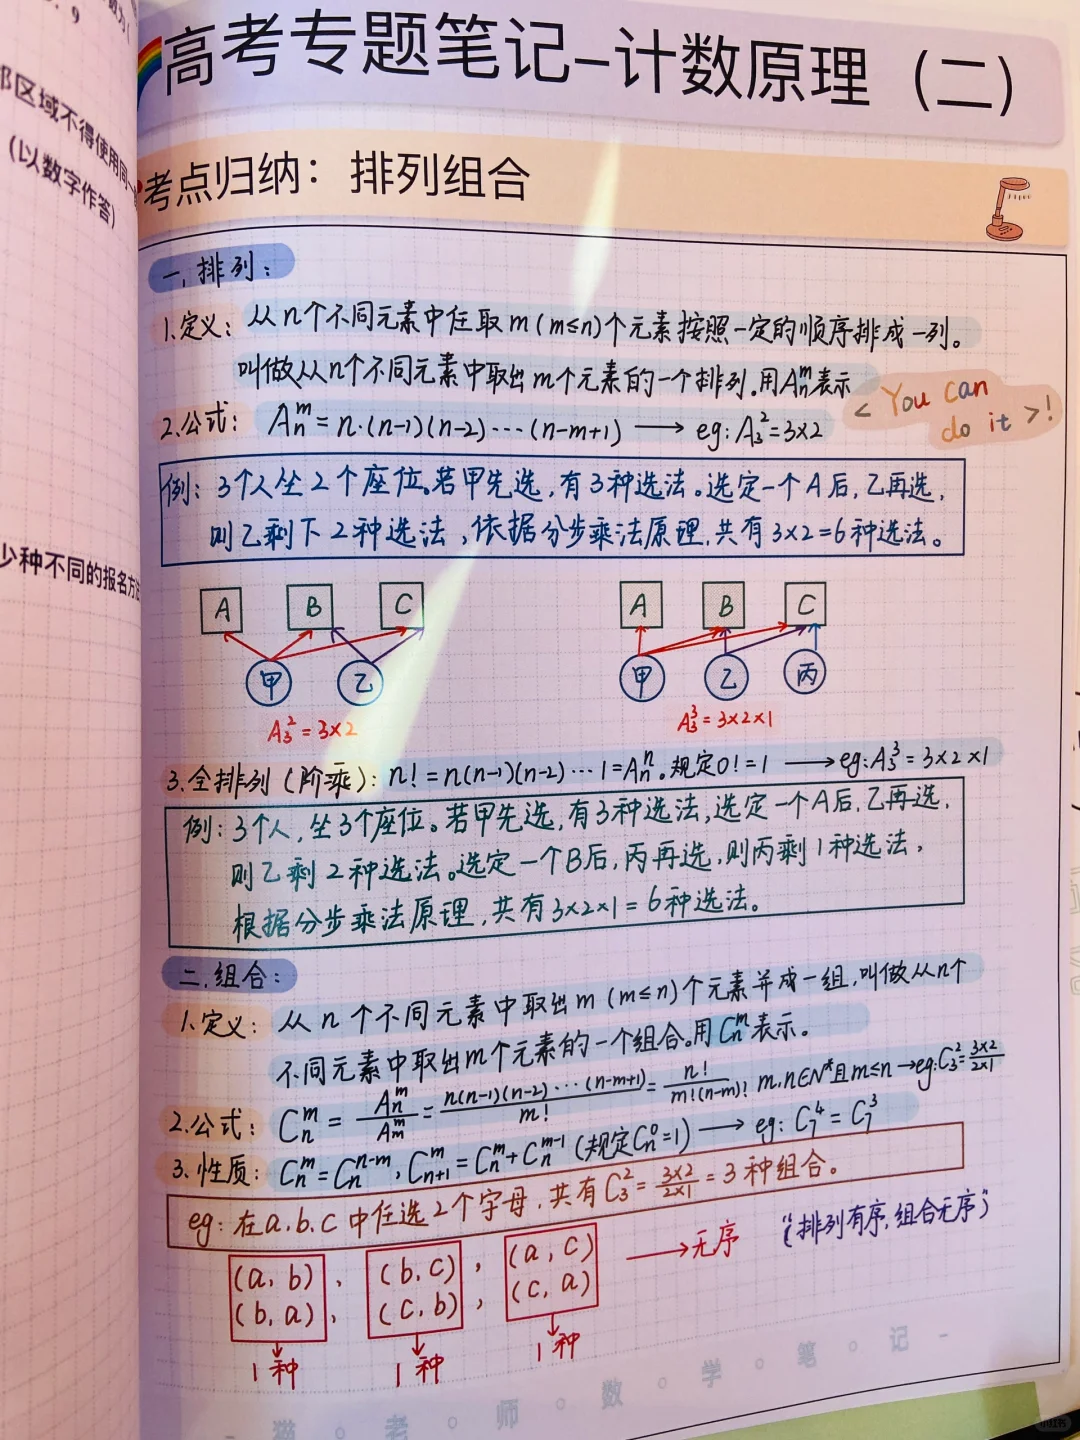 高考专题笔记-计数原理（二）
考点归纳：排列组合
一、排列：
1.定义：从n个不同元素中任取m(m≤n)个元素按照一定的顺序排成一列。
叫做从n个不同元素中取出m个元素的一个排列。用Aₙᵐ表示
< You can
do it >!
2.公式：Aₙᵐ=n·(n-1)(n-2)···(n-m+1) → eg:A₃²=3×2
例：3个人坐2个座位。若甲先选，有3种选法。选定一个A后，乙再选，
则乙剩下2种选法，依据分步乘法原理，共有3×2=6种选法。
A B C
甲 乙
A₃²=3×2
A B C
甲 乙 丙
A₃³=3×2×1
3.全排列（阶乘）：n!=n(n-1)(n-2)···1=Aₙⁿ。规定0!=1 → eg:A₃³=3×2×1
例：3个人，坐3个座位。若甲先选，有3种选法，选定一个A后，乙再选，
则乙剩2种选法。选定一个B后，丙再选，则丙剩1种选法，
根据分步乘法原理，共有3×2×1=6种选法。
二、组合：
1.定义：从n个不同元素中取出m(m≤n)个元素并成一组，叫做从n个
不同元素中取出m个元素的一个组合。用Cₙᵐ表示。
2.公式：Cₙᵐ=Aₙᵐ/Aₘᵐ=n(n-1)(n-2)···(n-m+1)/m!=n!/m!(n-m)! m,n∈N*且m≤n →eg:C₃²=3×2/2×1
3.性质：Cₙᵐ=Cₙⁿ⁻ᵐ，Cₙ₊₁ᵐ=Cₙᵐ+Cₙᵐ⁻¹(规定Cₙ⁰=1) → eg：C₇⁴=C₇³
eg：在a.b.c中任选2个字母，共有C₃²=3×2/2×1=3种组合。
(a,b)，(b,c)，(a,c) →无序 “排列有序，组合无序”
(b,a)，(c,b)，(c,a)
1种 1种 1种
猫。老。师。数。学。笔。记-
邻区域不得使用同一
(以数字作答)
少种不同的报名方法